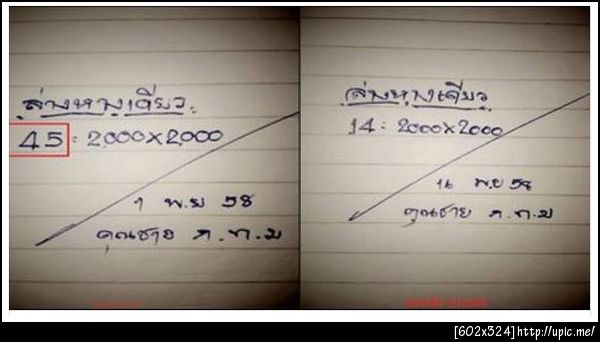 ล่างหางเดียว
45: 2,000×2,000
1 พ.ย 58
คุณชาย ภ.ท.ม
ล่างหางเดียว
14: 2000×2000
16 พ.ย 58
คุณชาย ภ.ท.ม
[602x324]http://upic.me/